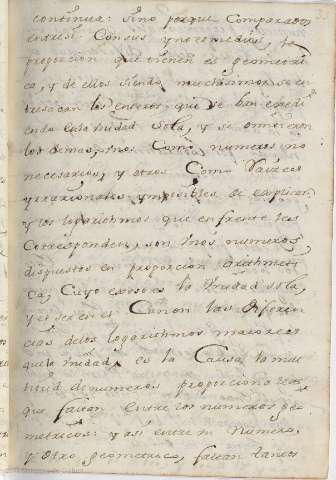 continua: sino porque comparados
entresi consus ynmediatos, la
proporcion que tienen es geometri
ca, y de ellos siendo muchisimos se en
tresacan los enteros, que se ban exedi
endo en la unidad sola, y se omitieron
los demas, unos como numeros no
necesarios, y otros como Raizes
yrracionales ymposibles de explicar
y los logarithmos que en frente les
corresponden, son unos numeros,
dispuestos en proporcion arithmeti
ca, Cuyo exeso es la unidad sola,
y el ser en el Canon las diferen
cias delos logarithmos maiores
que la unidad, es la Causa la mul
titud de numeros proporcionales
que faltan entre los numeros geo
metricos: y asi entre un Numero,
y otro geometrico, faltan tantos